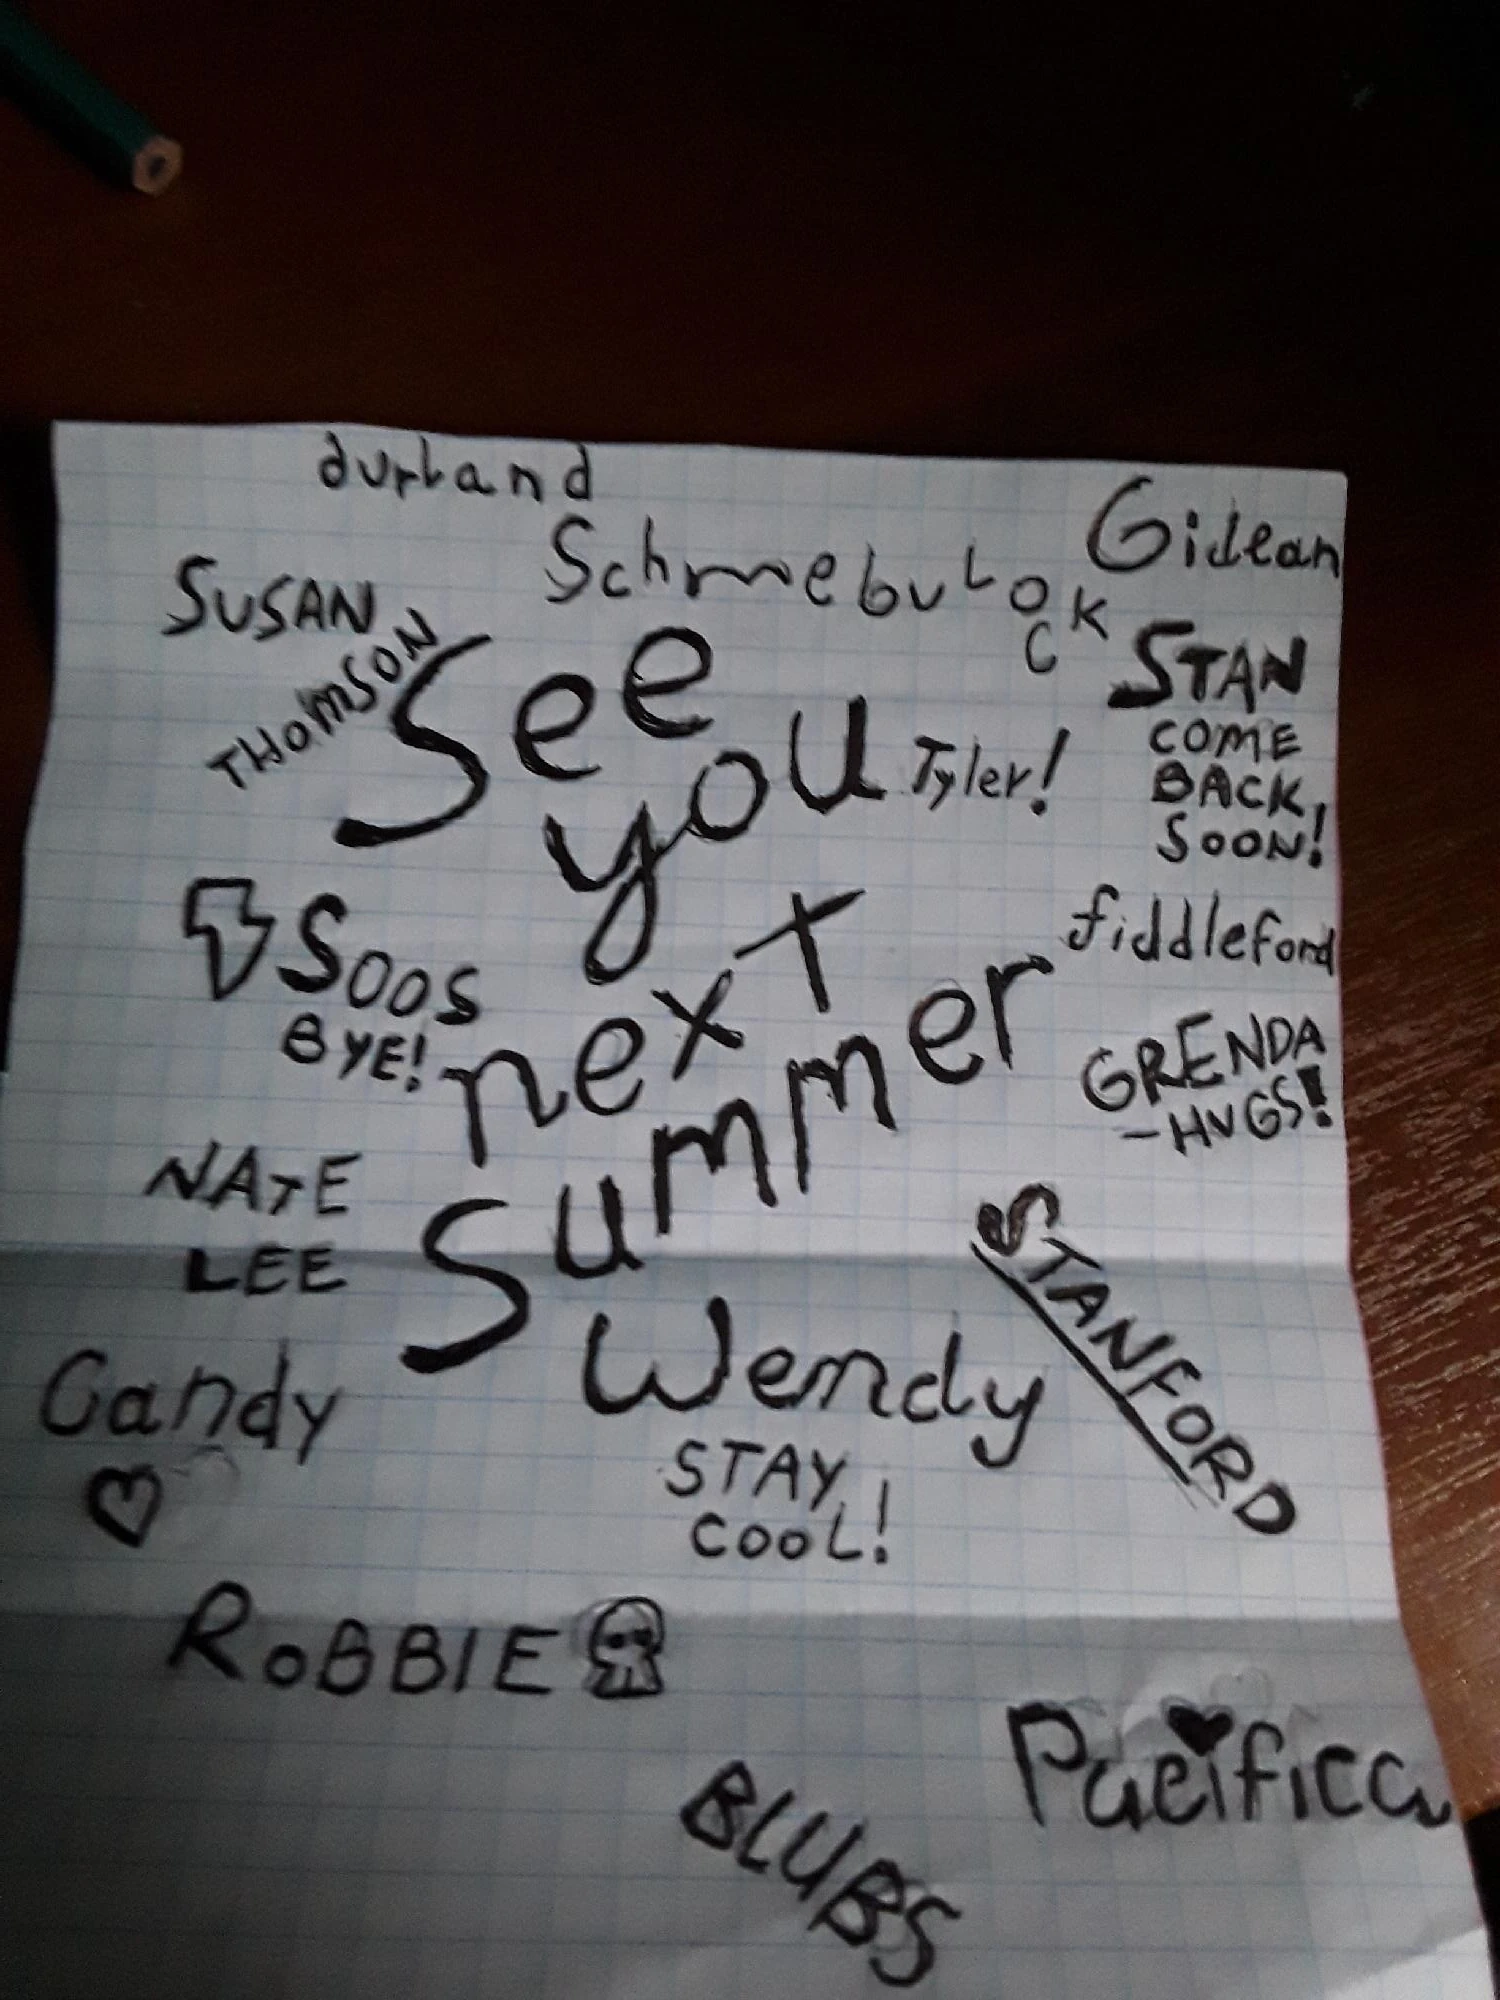 durland
Schmebulok
c
Gidean
SUSAN
THOMSON
See
you
next
summer
Tyler!
STAN
COME
BACK
SOON!
SOOS
BYE!
fiddleford
GRENDA
-HUGS!
NATE
LEE
STANFORD
Wendy
STAY
COOL!
Candy
ROBBIE
Pacifica
BLUBS